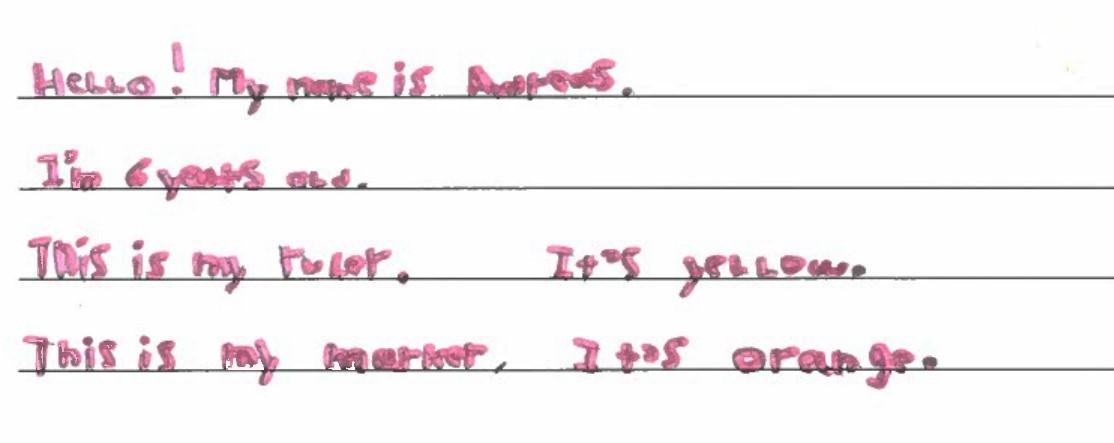 Hello! My name is
I'm 6 years old.
This is my ruler. It's yellow.
This is my marker, It's orange.